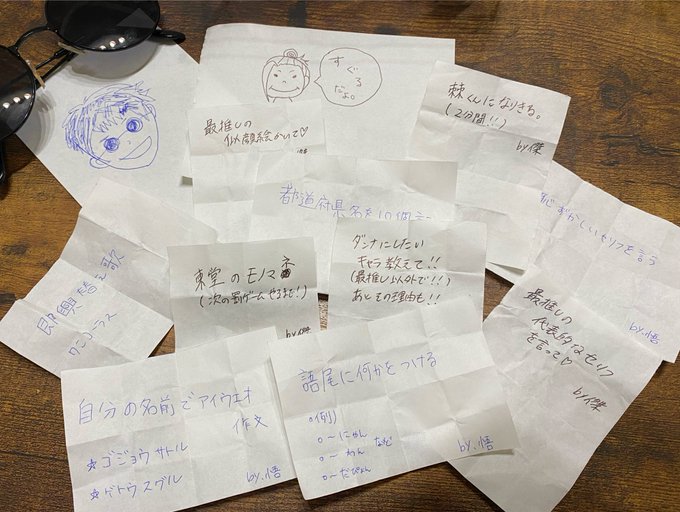 すぐる
だよ。
最推しの
似顔絵かいて♡
傑
棘くんになりきる。
(2分間!!)
by傑
都道府県名を10個言
恥ずかしいセリフを言う
by.悟
即興替え歌
ワンコーラス
東堂のモノマネ
(次の罰ゲームやるまで!)
by傑
ダンナにしたい
キャラ教えて!!
(最推し以外で!!)
あとその理由も!!
最推しの
代表的なセリフ
を言って♡
by傑
自分の名前でアイウエオ
作文
☆ゴジョウサトル
☆ゲトウスグル
by.悟
語尾に何かをつける
○例)
○〜にゃん
○〜わん など
○〜だぴょん
by.悟